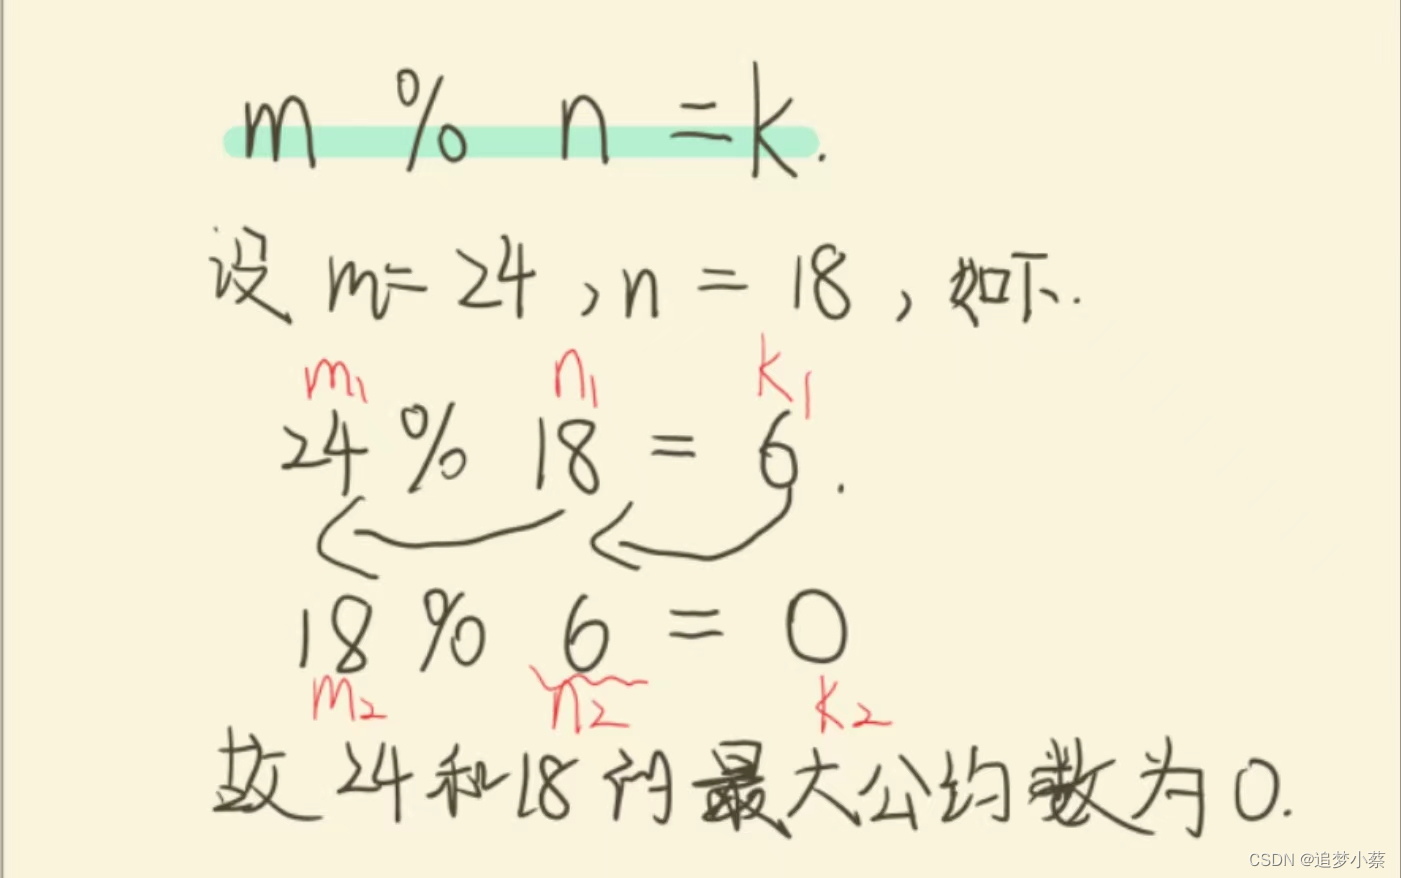 m % n = k.
设 m = 24 , n = 18 , 如下.
m₁ n₁ k₁
24 % 18 = 6 .
18 % 6 = 0
m₂ n₂ k₂
故 24 和 18 的最大公约数为 0.
CSDN @追梦小蔡